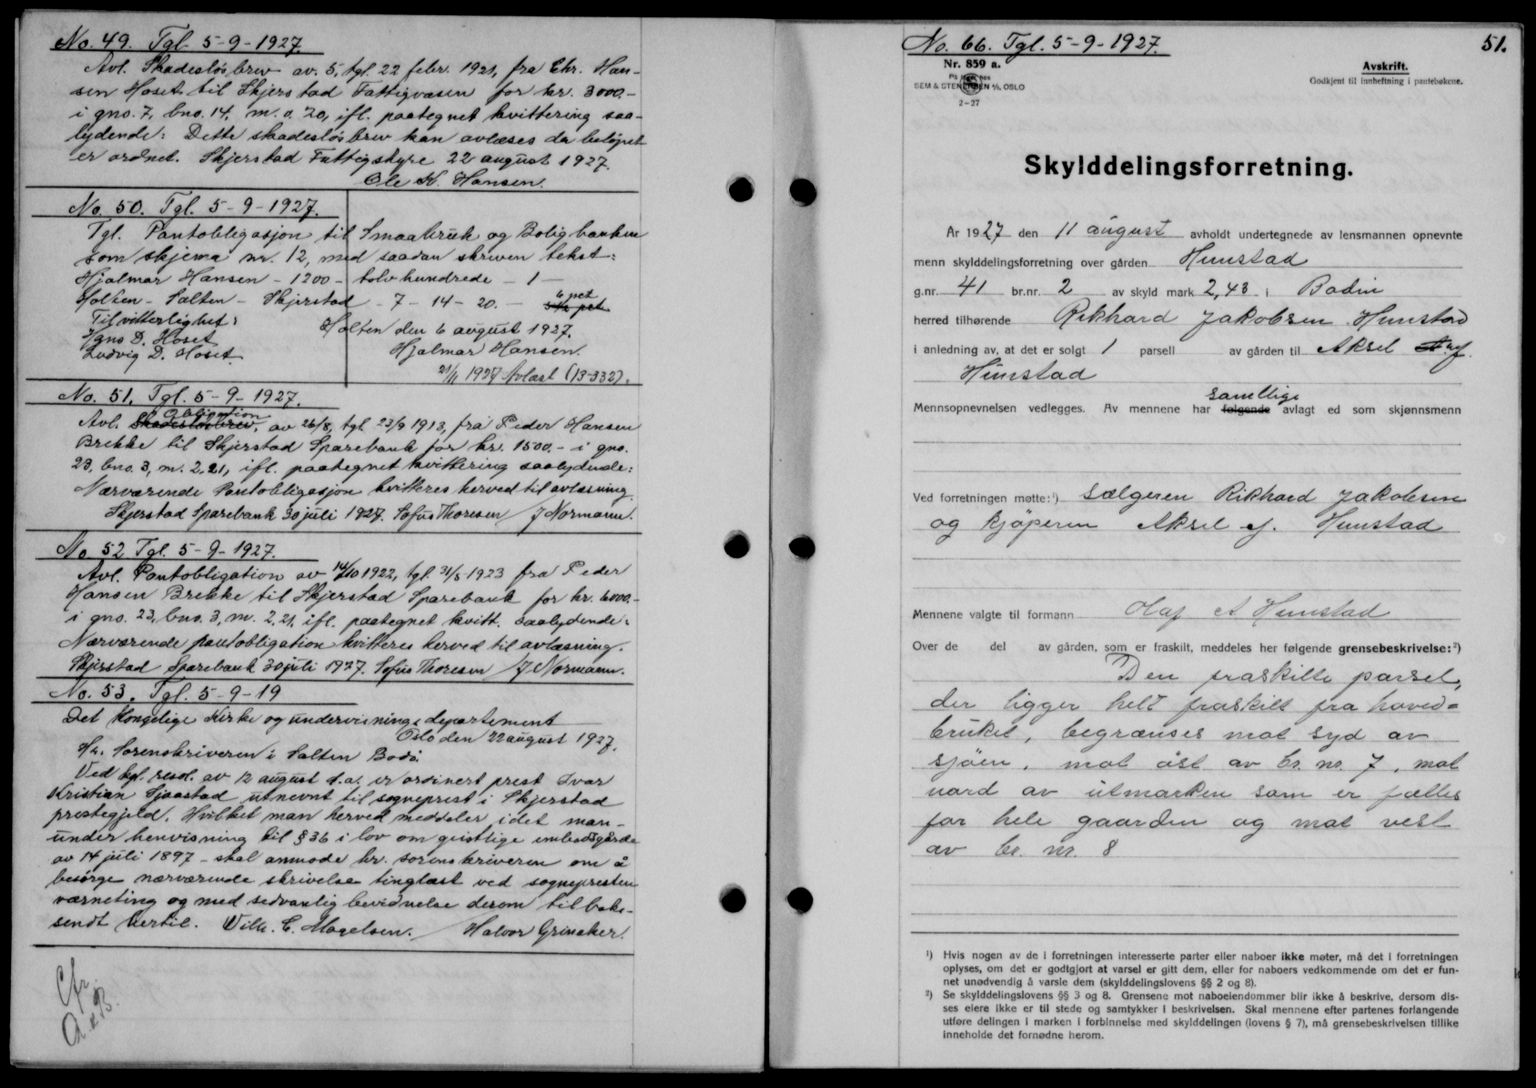 No. 49. Tgl. 5-9-1927.
Avl. Skadesløsbrev av. 5, tgl. 22 febr. 1921, fra Chr. Han-
sen Hoset til Skjerstad Fattigvæsen for kr. 3000.-
i gno. 7, bno. 14, m. 0.20, ifl. paategnet kvittering saa-
lydende: Dette skadesløsbrev kan avlæses da beløpet
er ordnet. Skjerstad Fattigstyre 22 august 1927.
Ole K. Hansen.
No. 50. Tgl. 5-9-1927.
Tgl. Pantobligasjon til Smaabruk og Boligbanken
som skjema nr. 12, med saadan skreven tekst:
Hjalmar Hansen - 1200 - tolv hundrede - 1 -
Holten - Salten - Skjerstad - 7 - 14 - 20. - 6 pct
Til vitterlighet: Holten den 6 august 1927.
Hans D. Hoset Hjalmar Hansen.
Ludvig D. Hoset
21/11 1927 Avlæst (13-332).
No. 51. Tgl. 5-9-1927.
Obligation
Avl. Skadesløsbrev, av 26/8, tgl. 23/9 1913, fra Peder Hansen
Brekke til Skjerstad Sparebank for kr. 1500.- i gno.
23, bno. 3, m. 2,21, ifl. paategnet kvittering saalydende:
Nærværende Pantobligasjon kvitteres herved til avlæsning.
Skjerstad Sparebank 30 juli 1927. Sofus Thoresen / J Normann.
No. 52 Tgl. 5-9-1927.
Avl. Pantobligation av 14/10 1922, tgl. 31/5 1923 fra Peder
Hansen Brekke til Skjerstad Sparebank for kr. 6000.-
i gno. 23, bno. 3, m. 2,21, ifl. paategnet kvitt. saalydende:
Nærværende pantobligation kvitteres herved til avlæsning.
Skjerstad Sparebank 30 juli 1927. Sofus Thoresen / J Normann.
No. 53. Tgl. 5-9-19
Det Kongelige Kirke og undervisnings departement
Oslo den 22 august 1927.
Hr. Sorenskriveren i Salten Bodø.
Ved kgl. resol. av 12 august d.a. er ordinert prest Ivar
Kristian Sjaastad utnevnt til sogneprest i Skjerstad
prestegjeld. Hvilket man herved meddeler idet man -
under henvisning til § 36 i lov om geistlige embedsgårde
av 14 juli 1897 - skal anmode hr. sorenskriveren om å
besørge nærværende skrivelse tinglæst ved sogneprestens
værneting og med sedvanlig bevidnelse derom tilbake-
sendt hertil. Vilh. C. Magelsen. / Halvor Grinaker.
Cfr.
No. 66. Tgl. 5-9-1927. 51.
Nr. 859 a. Avskrift.
Godkjent til innheftning i pantebøkene.
SEM & STENERSEN A/S, OSLO
2-27
Skylddelingsforretning.
År 1927 den 11 august avholdt undertegnede av lensmannen opnevnte
menn skylddelingsforretning over gården Hunstad
g.nr. 41 br.nr. 2 av skyld mark 2,43 i Bodin
herred tilhørende Rikhard Jakobsen Hunstad
i anledning av, at det er solgt 1 parsell av gården til Aksel J.
Hunstad
samtlige
Mennsopnevnelsen vedlegges. Av mennene har følgende avlagt ed som skjønnsmenn
Ved forretningen møtte:¹) sælgeren Rikhard Jakobsen
og kjøperen Aksel J. Hunstad
Mennene valgte til formann Olaf A Hunstad
Over de del av gården, som er fraskilt, meddeles her følgende grensebeskrivelse:²)
Den fraskilte parsel,
der ligger helt fraskilt fra hoved=
bruket, begrænses mot syd av
sjøen, mot øst av br. nr. 7, mot
nord av utmarken som er fælles
for hele gaarden og mot vest
av br. nr. 8
¹) Hvis nogen av de i forretningen interesserte parter eller naboer ikke møter, må det i forretningen
oplyses, om det er godtgjort at varsel er gitt dem, eller for naboers vedkommende om det er fun-
net unødvendig å varsle dem (skylddelingslovens §§ 2 og 8).
²) Se skylddelingslovens §§ 3 og 8. Grensene mot naboeiendommer blir ikke å beskrive, dersom dis-
ses eiere ikke er til stede og samtykker i beskrivelsen. Skal mennene efter partenes forlangende
utføre delingen i marken i forbinnelse med skylddelingen (lovens § 7), må grensebeskrivelsen tillike
inneholde det fornødne herom.